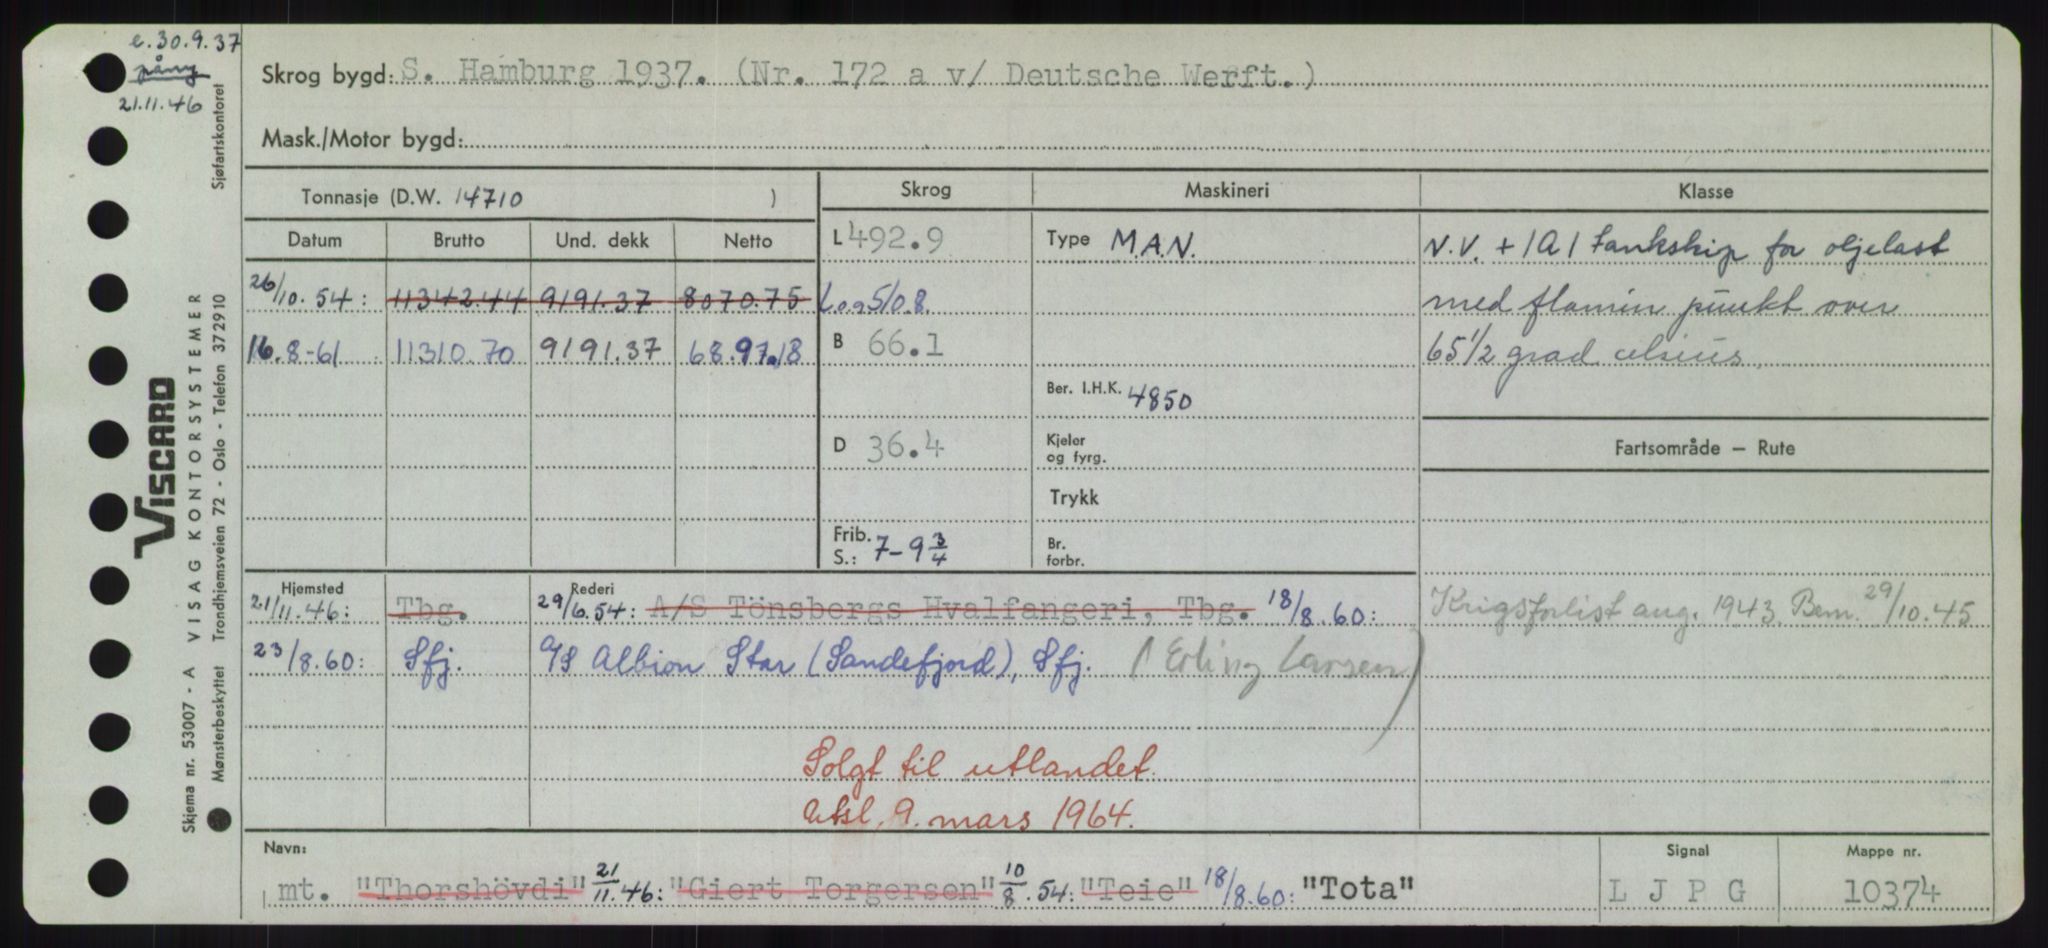 e. 30.9.37
påny
21.11.46
Skrog bygd: S. Hamburg 1937. (Nr. 172 a v/ Deutsche Werft.)
Mask./Motor bygd:
Tonnasje (D.W. 14710 )
Skrog
Maskineri
Klasse
Datum Brutto Und. dekk Netto
L 492.9
Type M.A.N.
N.V. + 1A1 tankskip for oljelast
26/10.54: 11342.44 9191.37 8070.75
L.o.a 510.8.
med flamm punkt over
16.8-61 11310.70 9191.37 68.97.18
B 66.1
65 1/2 grad celsius
Ber. I.H.K. 4850
D 36.4
Kjeler
og fyrg.
Fartsområde — Rute
Trykk
Frib.
S.: 7-9 3/4
Br.
forbr.
Hjemsted
Rederi
21/11.46: Tbg. 29/6.54: A/S Tönsbergs Hvalfangeri, Tbg. 18/8.60:
Krigsforlist aug. 1943. Bem. 29/10.45
23/8.60: Sfj. A/S Albion Star (Sandefjord), Sfj. (Erling Larsen)
Solgt til utlandet.
Utsl. 9. mars 1964.
Navn:
Signal
Mappe nr.
mt. "Thorshövdi" 21/11.46: "Giert Torgersen" 10/8.54: "Teie" 18/8.60: "Tota"
L J P G
10374
VISCARD
Skjema nr. 53007 - A VISAG KONTORSYSTEMER
Mønsterbeskyttet Trondhjemsveien 72 - Oslo - Telefon 372910 Sjøfartskontoret